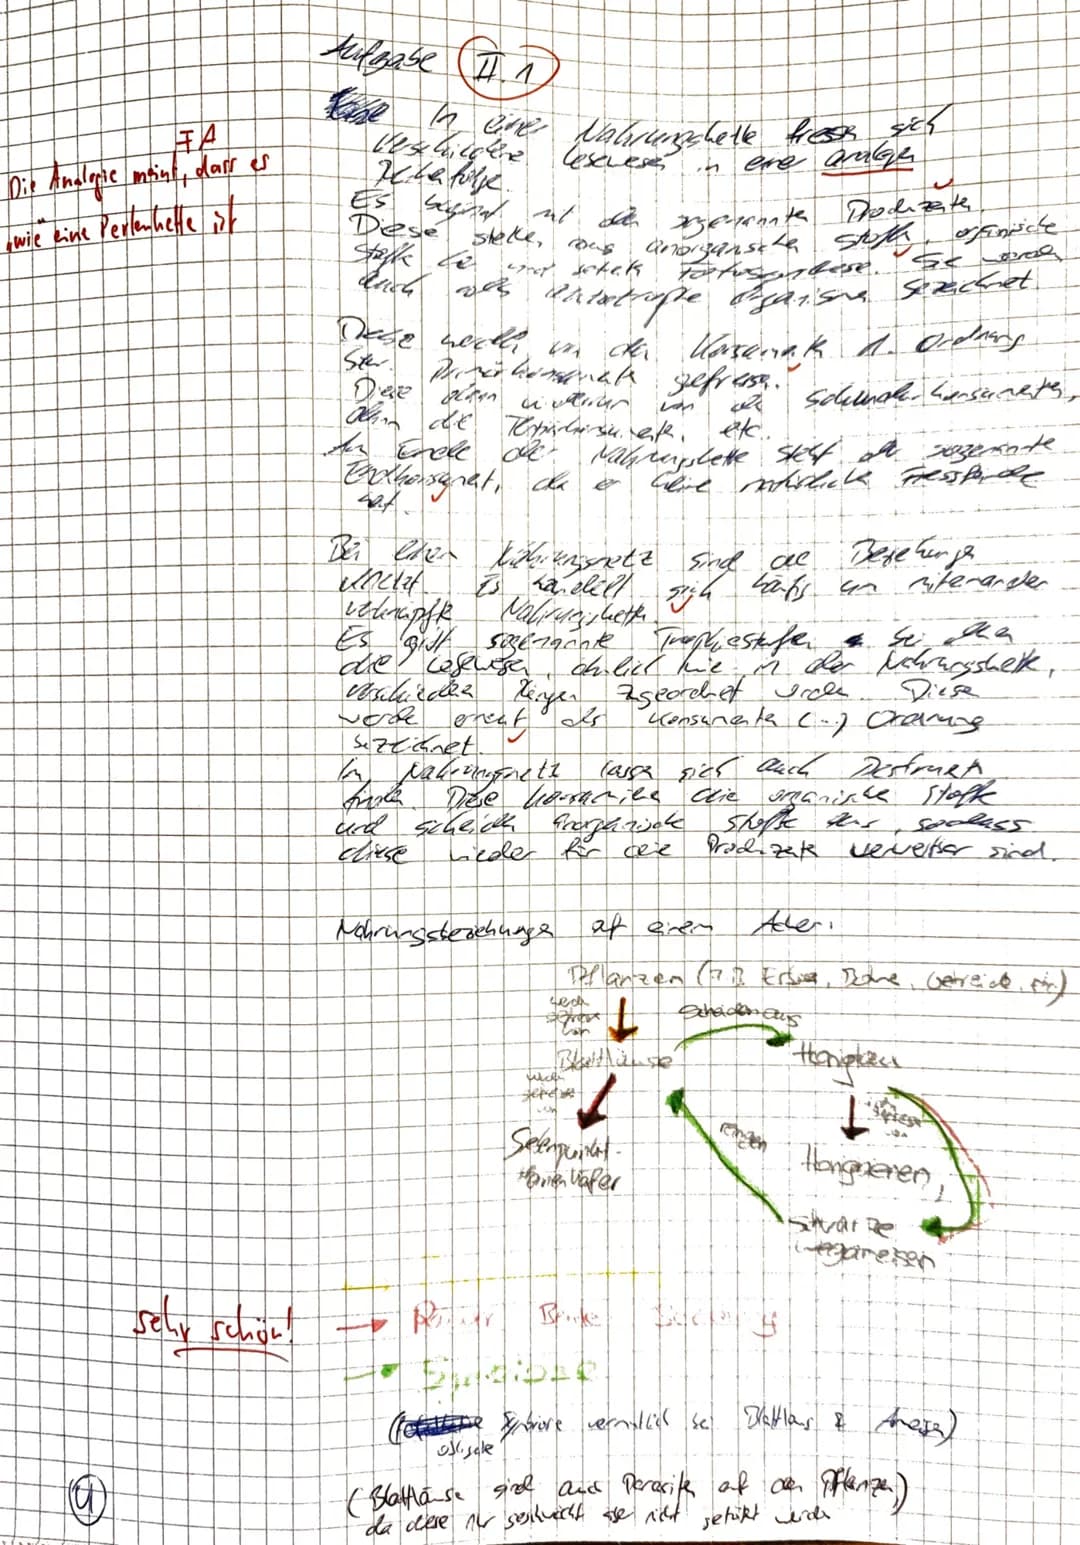 Aufgabe II.1
In einer Nahrungskette fressen sich
verschiedene Lebewesen in einer analogen
Reihenfolge.
FA
Die Analogie meint, dass es
"wie eine Perlenkette ist
Es beginnt mit den sogenannten Produzenten
Diese stellen aus anorganischen Stoffen, organische
Stoffe her und Fotosynthese. Sie werden
auch als autotrophe Organismen bezeichnet.
Diese werden von den Konsumenten 1. Ordnung
bzw. Primärkonsumenten gefressen.
Diese dann wiederum von den Sekundärkonsumenten,
dann die Tertiärkonsumenten, etc.
Am Ende der Nahrungskette steht der sogenannte
Endkonsument, da er keine natürlichen Fressfeinde
hat.
Bei einem Nahrungsnetz sind die Beziehungen
vernetzt. Es handelt sich häufig um miteinander
verknüpfte Nahrungsketten.
Es gibt sogenannte Trophiestufen bei denen
die Lebewesen, ähnlich wie in der Nahrungskette,
verschiedenen zugeordnet werden. Diese
werden erneut als Konsumenten (...) Ordnung
bezeichnet.
Im Nahrungsnetz lassen sich auch Destruenten
finden. Diese konsumieren die organischen Stoffe
und scheiden anorganische Stoffe aus, sodass
diese wieder für die Produzenten verwertbar sind.
Nahrungsbeziehungen auf einem Acker:
Pflanzen (z.B. Erbse, Bohne, Getreide, etc.)
werden gefressen von
scheiden aus
Blattläuse
Honigtau
werden gefressen von
reinigen
Siebenpunkt-
Marienkäfer
Honigbienen,
schwarze
Wegameisen
sehr schön!
Räuber Beute Beziehung
Symbiose
(Symbiose vermutlich bei Blattlaus & Ameise)
(Blattläuse sind auch Parasiten auf den Pflanzen)
da diese nur geschwächt aber nicht getötet werden